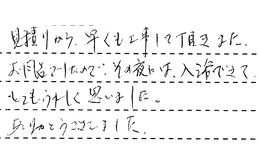 見積りから、早くも工事して頂きました。
お風呂でしたので、その夜には、入浴できて、
とてもうれしく思いました。
ありがとうございました。